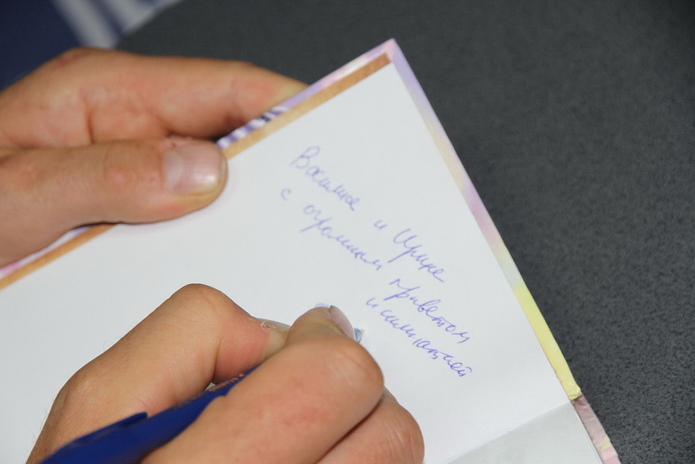 Василисе и Ирине
с огромным приветом
и симпатией